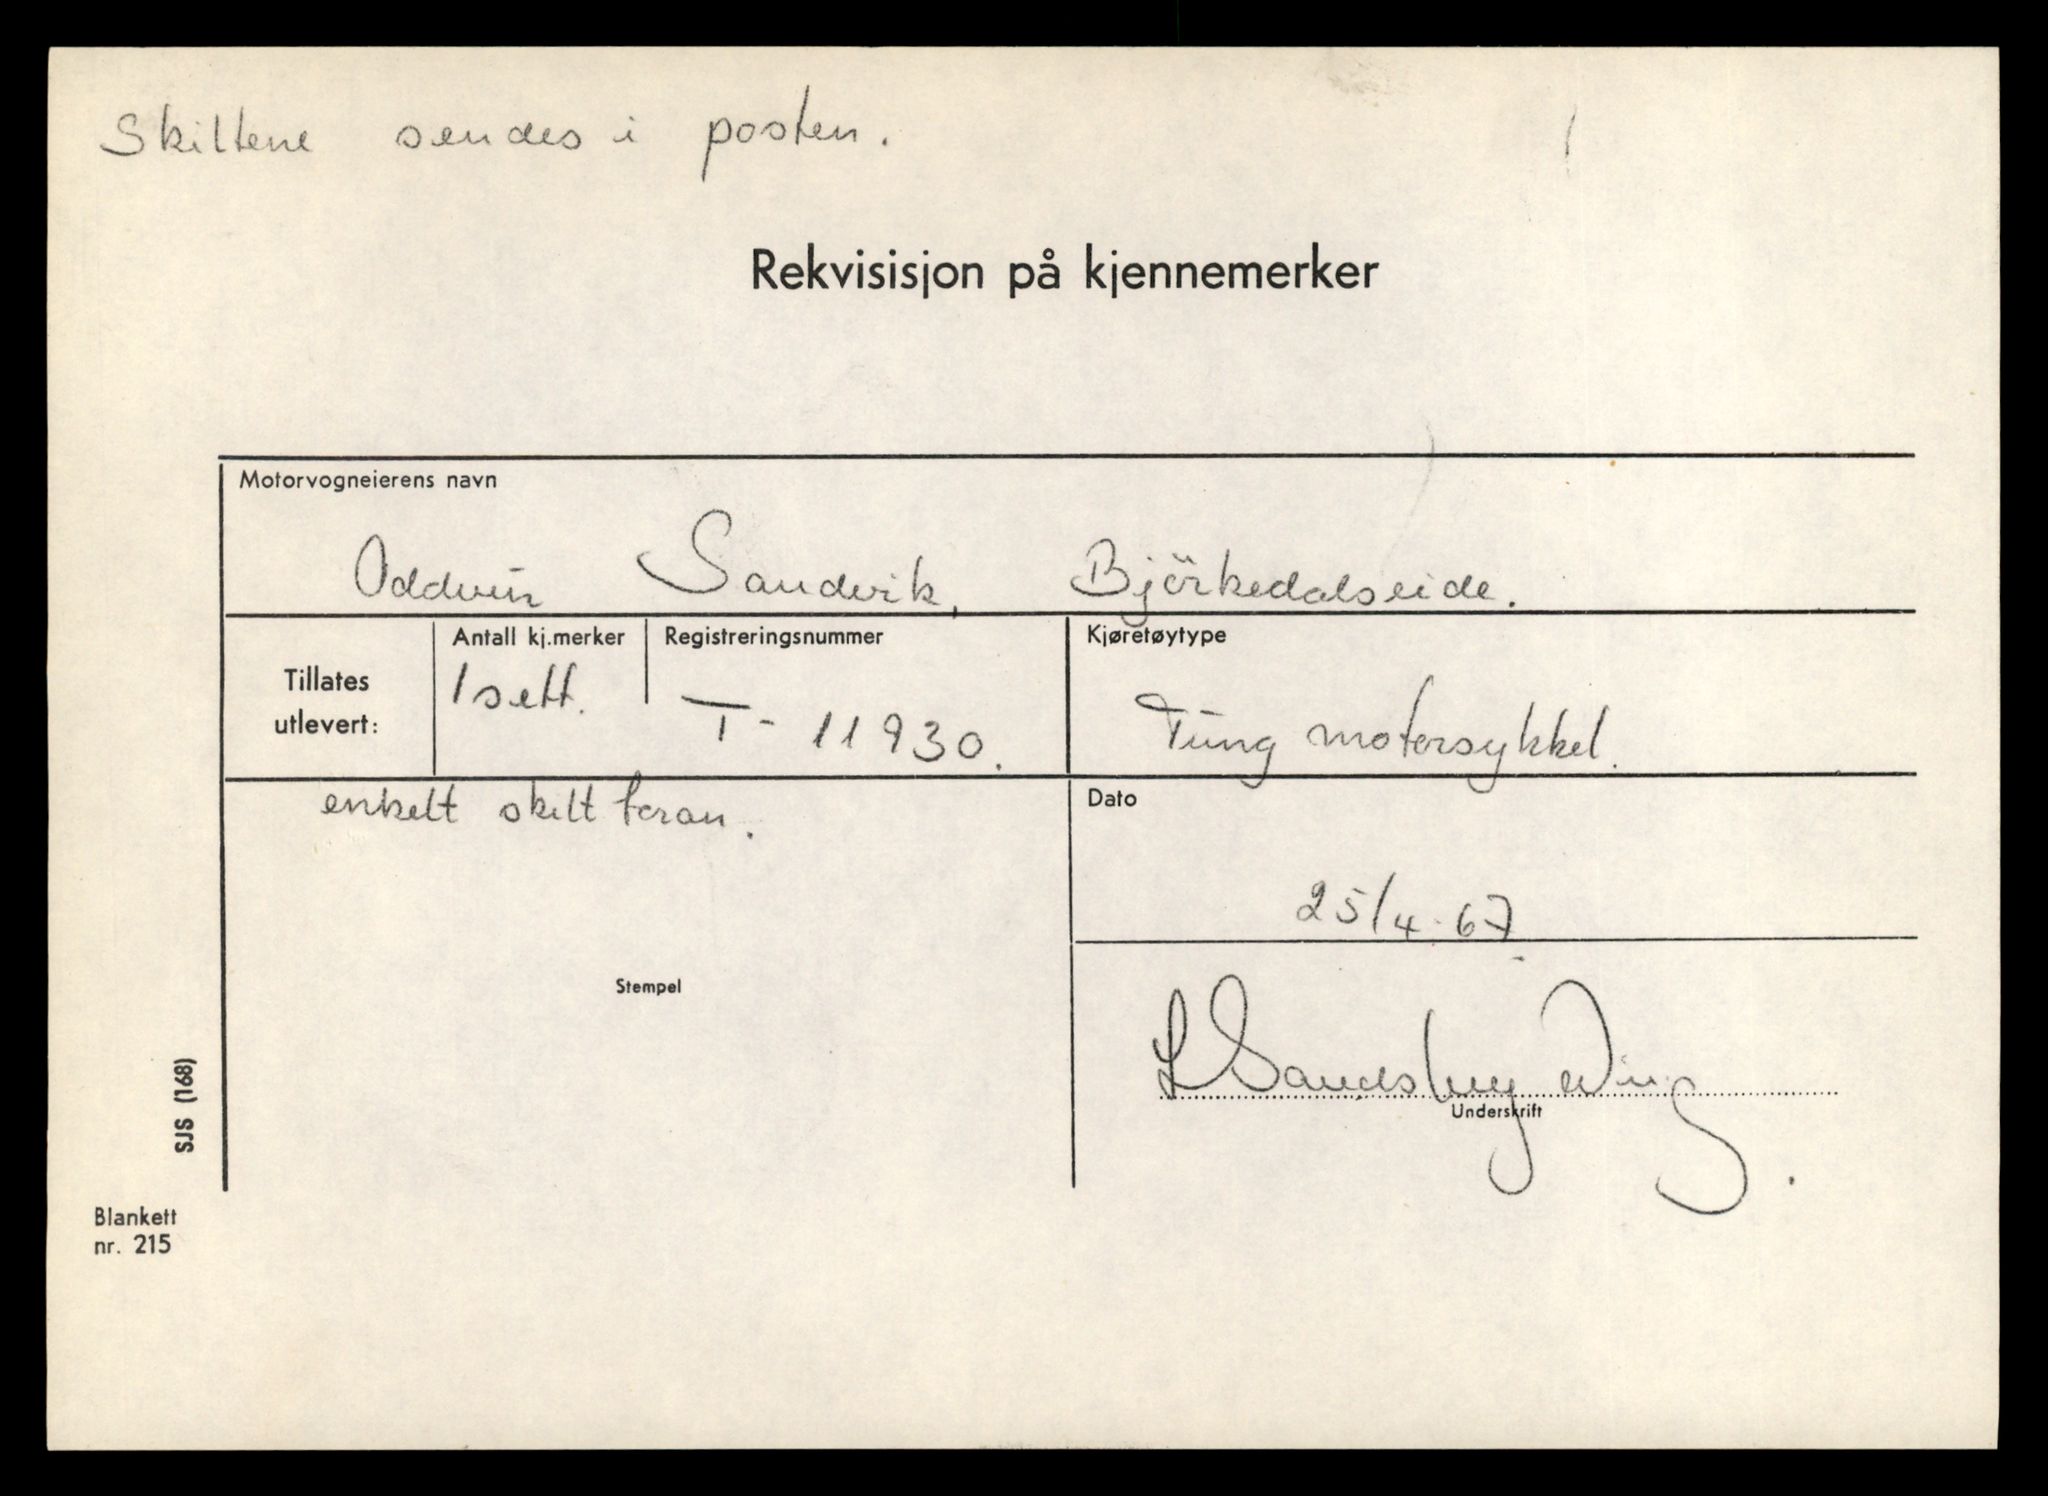 Skiltene sendes i posten.
Rekvisisjon på kjennemerker
Motorvogneierens navn
Oddvin Sandvik, Björkedalseide.
Tillates utlevert:
Antall kj.merker
1 sett.
Registreringsnummer
T - 11930.
Kjøretøytype
Tung motorsykkel.
enkelt skilt foran.
Dato
25/4-67
Stempel
Underskrift
SJS (168)
Blankett
nr. 215